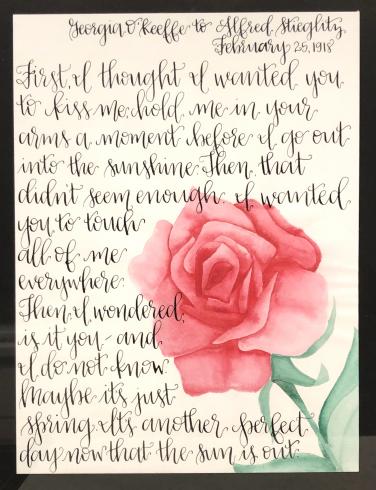 Georgia O'Keeffe to Alfred Stieglitz
February 25, 1918
First, I thought I wanted you
to kiss me, hold me in your
arms a moment before I go out
into the sunshine. Then that
didn't seem enough. I wanted
you to touch
all of me
everywhere.
Then I wondered,
is it you - and
I do not know
Maybe it's just
spring. It's another perfect
day now that the sun is out.